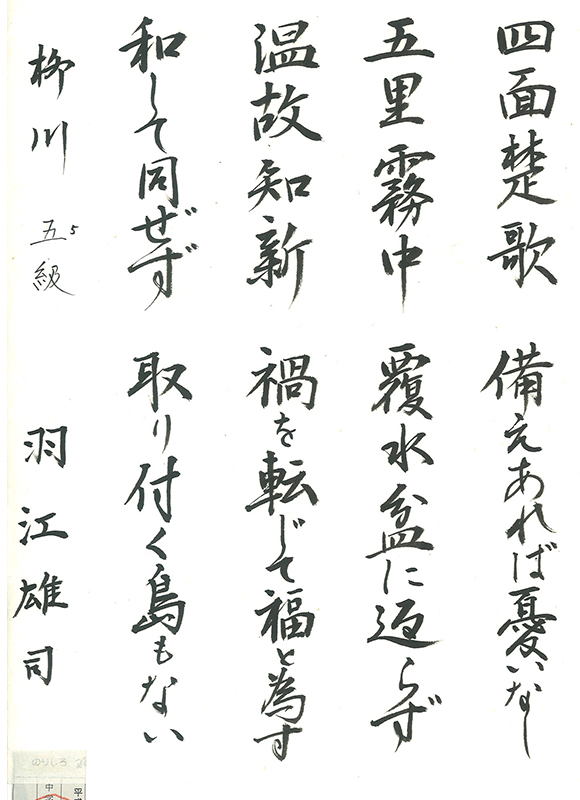 四面楚歌 備えあれば憂いなし
五里霧中 覆水盆に返らず
温故知新 禍を転じて福と為す
和して同ぜず 取り付く島もない
柳川 五5級 羽江雄司
のりしろ